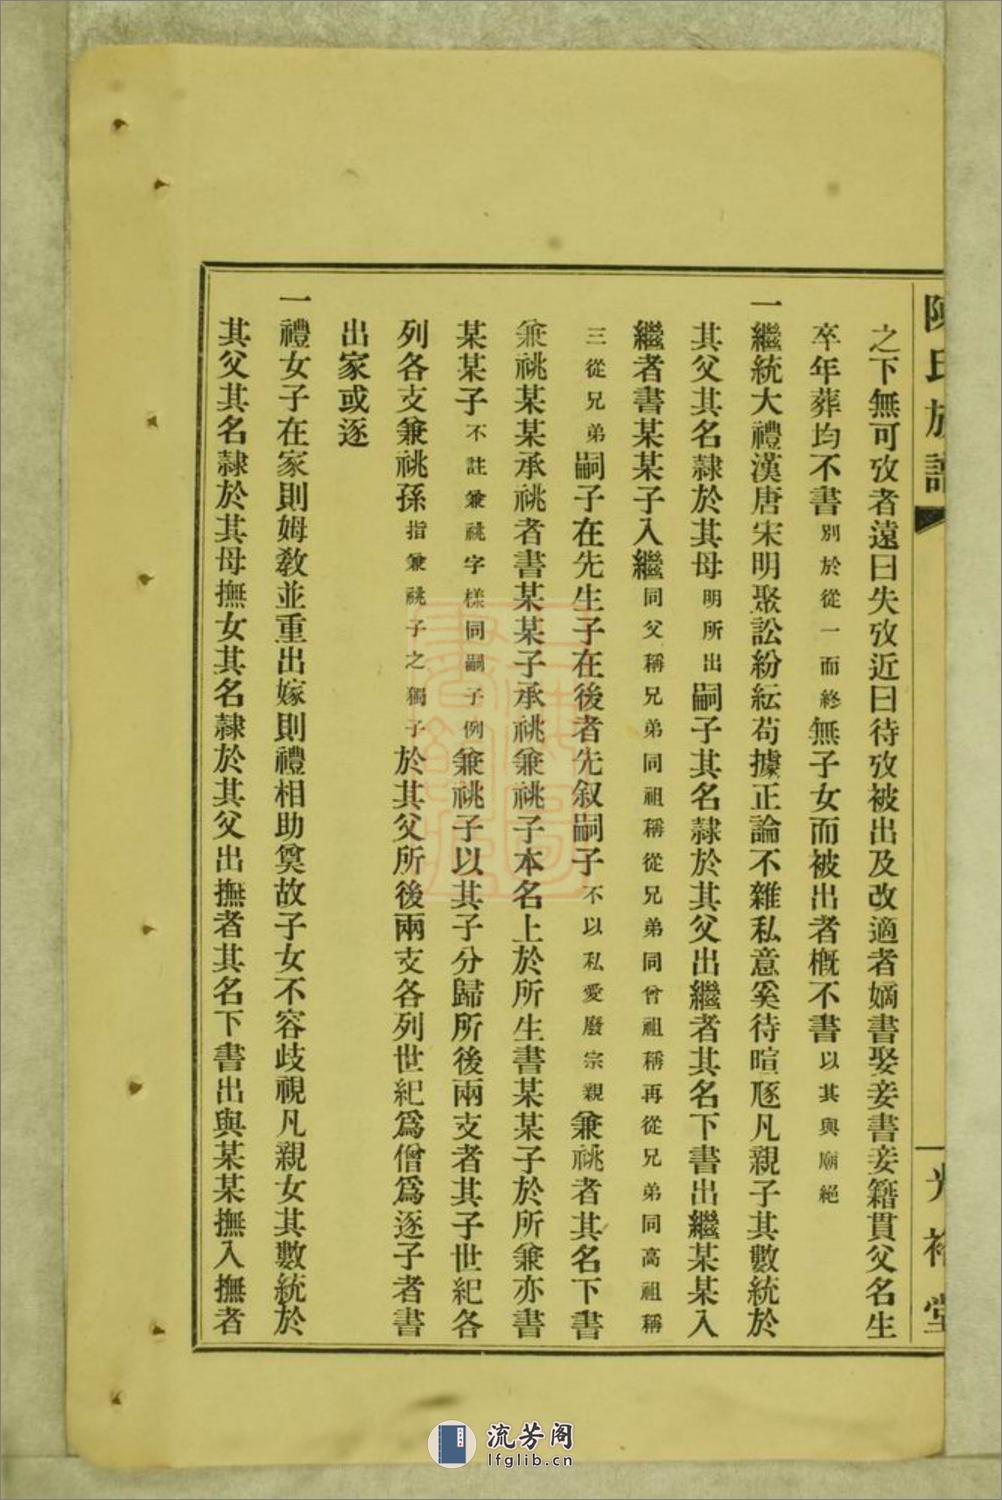 陳氏族譜
一 光裕堂
之下無可攷者遠曰失攷近曰待攷被出及改適者嫡書娶妾書妾籍貫父名生
卒年葬均不書別於從一而終無子女而被出者槪不書以其與廟絕
一繼統大禮漢唐宋明聚訟紛紜苟據正論不雜私意奚待喧豗凡親子其數統於
其父其名隸於其母明所出嗣子其名隸於其父出繼者其名下書出繼某某入
繼者書某某子入繼同父稱兄弟同祖稱從兄弟同曾祖稱再從兄弟同高祖稱
三從兄弟嗣子在先生子在後者先叙嗣子不以私愛廢宗親兼祧者其名下書
兼祧某某承祧者書某某子承祧兼祧子本名上於所生書某某子於所兼亦書
某某子不註兼祧字樣同嗣子例兼祧子以其子分歸所後兩支者其子世紀各
列各支兼祧孫指兼祧子之獨子於其父所後兩支各列世紀爲僧爲逐子者書
出家或逐
一禮女子在家則姆敎並重出嫁則禮相助奠故子女不容歧視凡親女其數統於
其父其名隸於其母撫女其名隸於其父出撫者其名下書出與某某撫入撫者
流芳阁
lfglib.cn